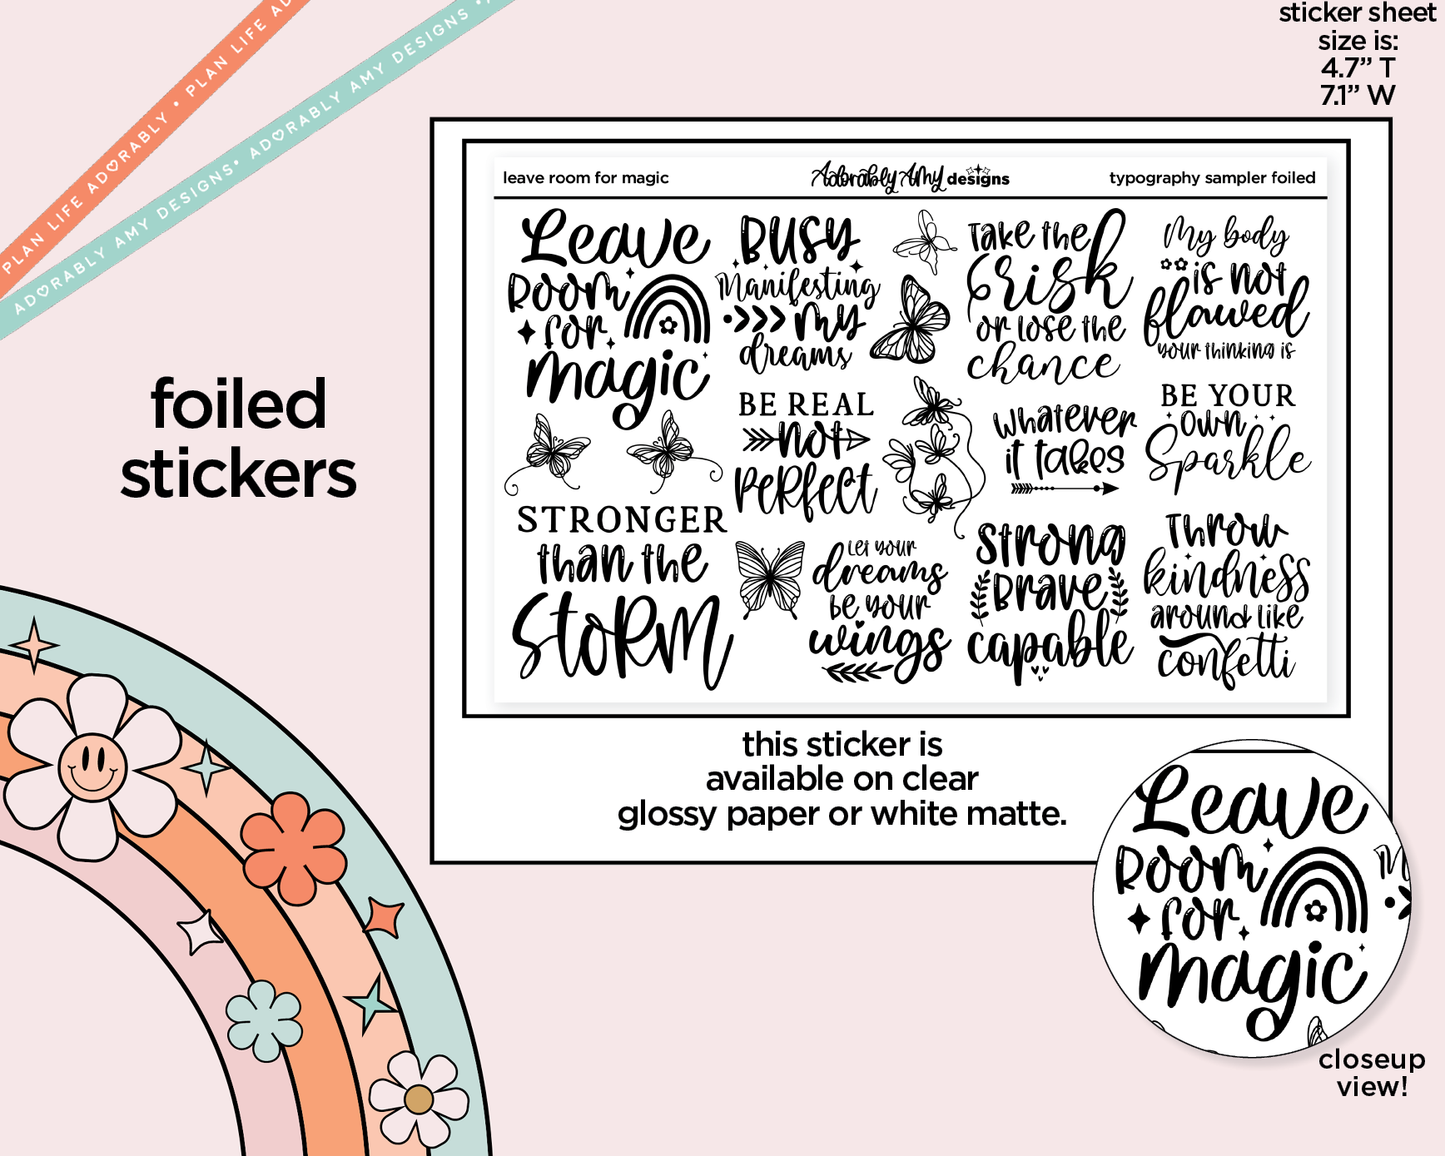 sticker sheet
size is:
4.7” T
7.1” W
PLAN LIFE ADORABLY • PLAN LIFE AD
ADORABLY AMY DESIGNS • ADORABLY AMY DESIGNS •
foiled
stickers
leave room for magic
Adorably Amy designs
typography sampler foiled
Leave
Room
for
magic
STRONGER
than the
StoRM
BUSY
Manifesting
my
dreams
BE REAL
not
PeRfect
Let your
dreams
be your
wings
Take the
risk
or lose the
chance
whatever
it takes
Strong
BRave
capable
My body
is not
flawed
your thinking is
BE YOUR
own
Sparkle
Throw
kindness
around like
confetti
this sticker is
available on clear
glossy paper or white matte.
Leave
Room
for
magic
closeup
view!